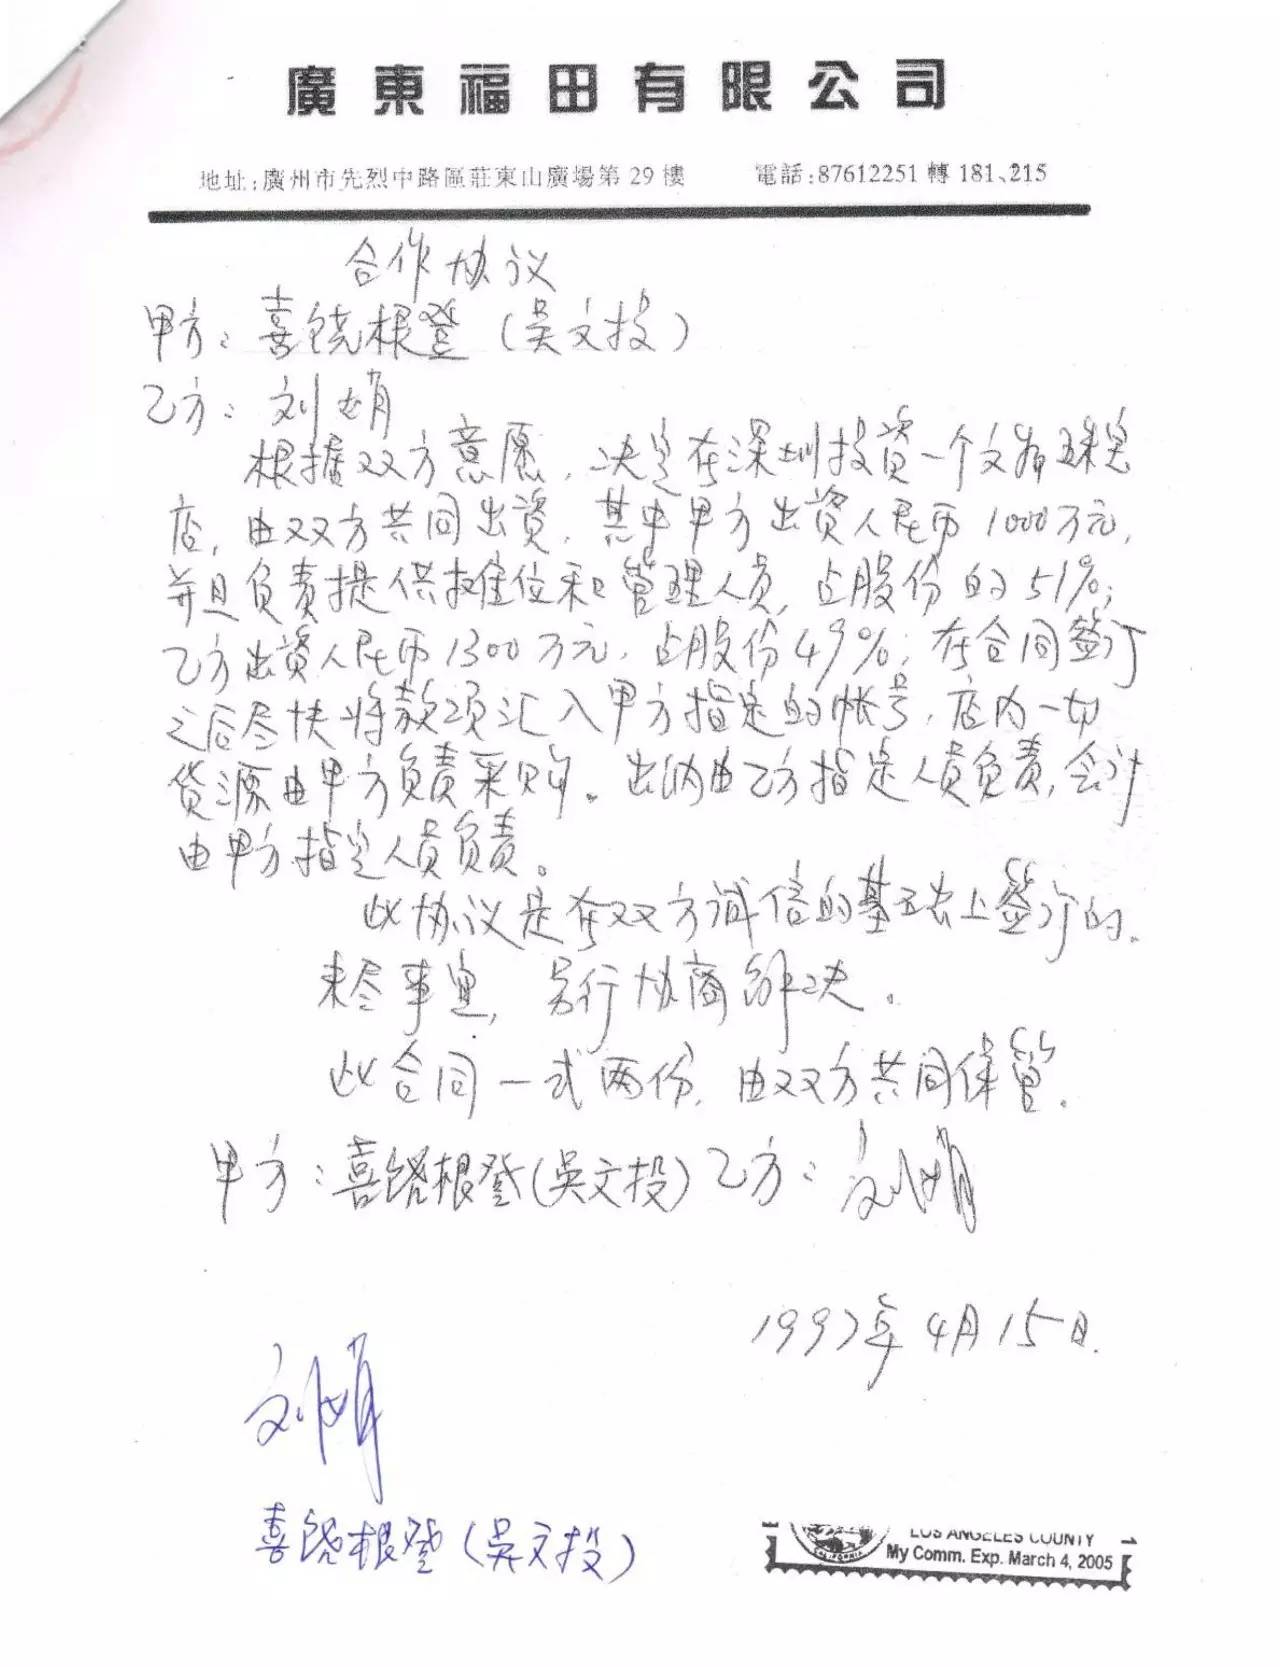 廣東福田有限公司
地址:廣州市先烈中路區莊東山廣場第29樓 電話:87612251轉181、215
合作协议
甲方：喜饶根登（吴文投）
乙方：刘娟
根据双方意愿，决定在深圳投资一个文物珠宝
店，由双方共同出资，其中甲方出资人民币1000万元，
并且负责提供摊位和管理人员，占股份的51%；
乙方出资人民币1300万元，占股份49%；在合同签订
之后尽快将款项汇入甲方指定的帐号，店内一切
货源由甲方负责采购。出纳由乙方指定人員负责，会计
由甲方指定人員负责。
此协议是在双方诚信的基础上签订的。
未尽事宜，另行协商解决。
此合同一式两份，由双方共同保管。
甲方：喜饶根登(吴文投) 乙方：刘娟
1997年4月15日.
刘娟
喜饶根登（吴文投）
CALIFORNIA
LOS ANGELES COUNTY
My Comm. Exp. March 4, 2005